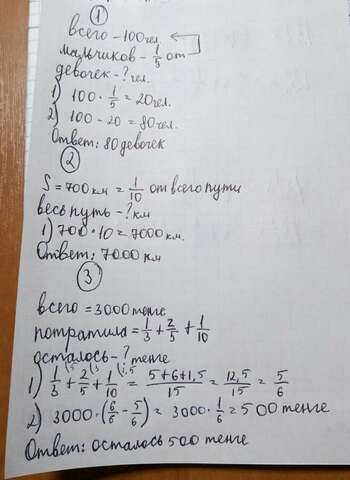 1
всего - 100 чел.
мальчиков - 1/5 от
девочек - ? чел.
1) 100 · 1/5 = 20 чел.
2) 100 - 20 = 80 чел.
Ответ: 80 девочек
2
S = 700 км = 1/10 от всего пути
весь путь - ? км
1) 700 · 10 = 7000 км.
Ответ: 7000 км
3
всего = 3000 тенге
потратила = 1/3 + 2/5 + 1/10
осталось - ? тенге
1) 1/3 (5 + 2/5 (3 + 1/10 (1,5 = 5+6+1,5/15 = 12,5/15 = 5/6
2) 3000 · (6/6 - 5/6) = 3000 · 1/6 = 500 тенге
Ответ: осталось 500 тенге